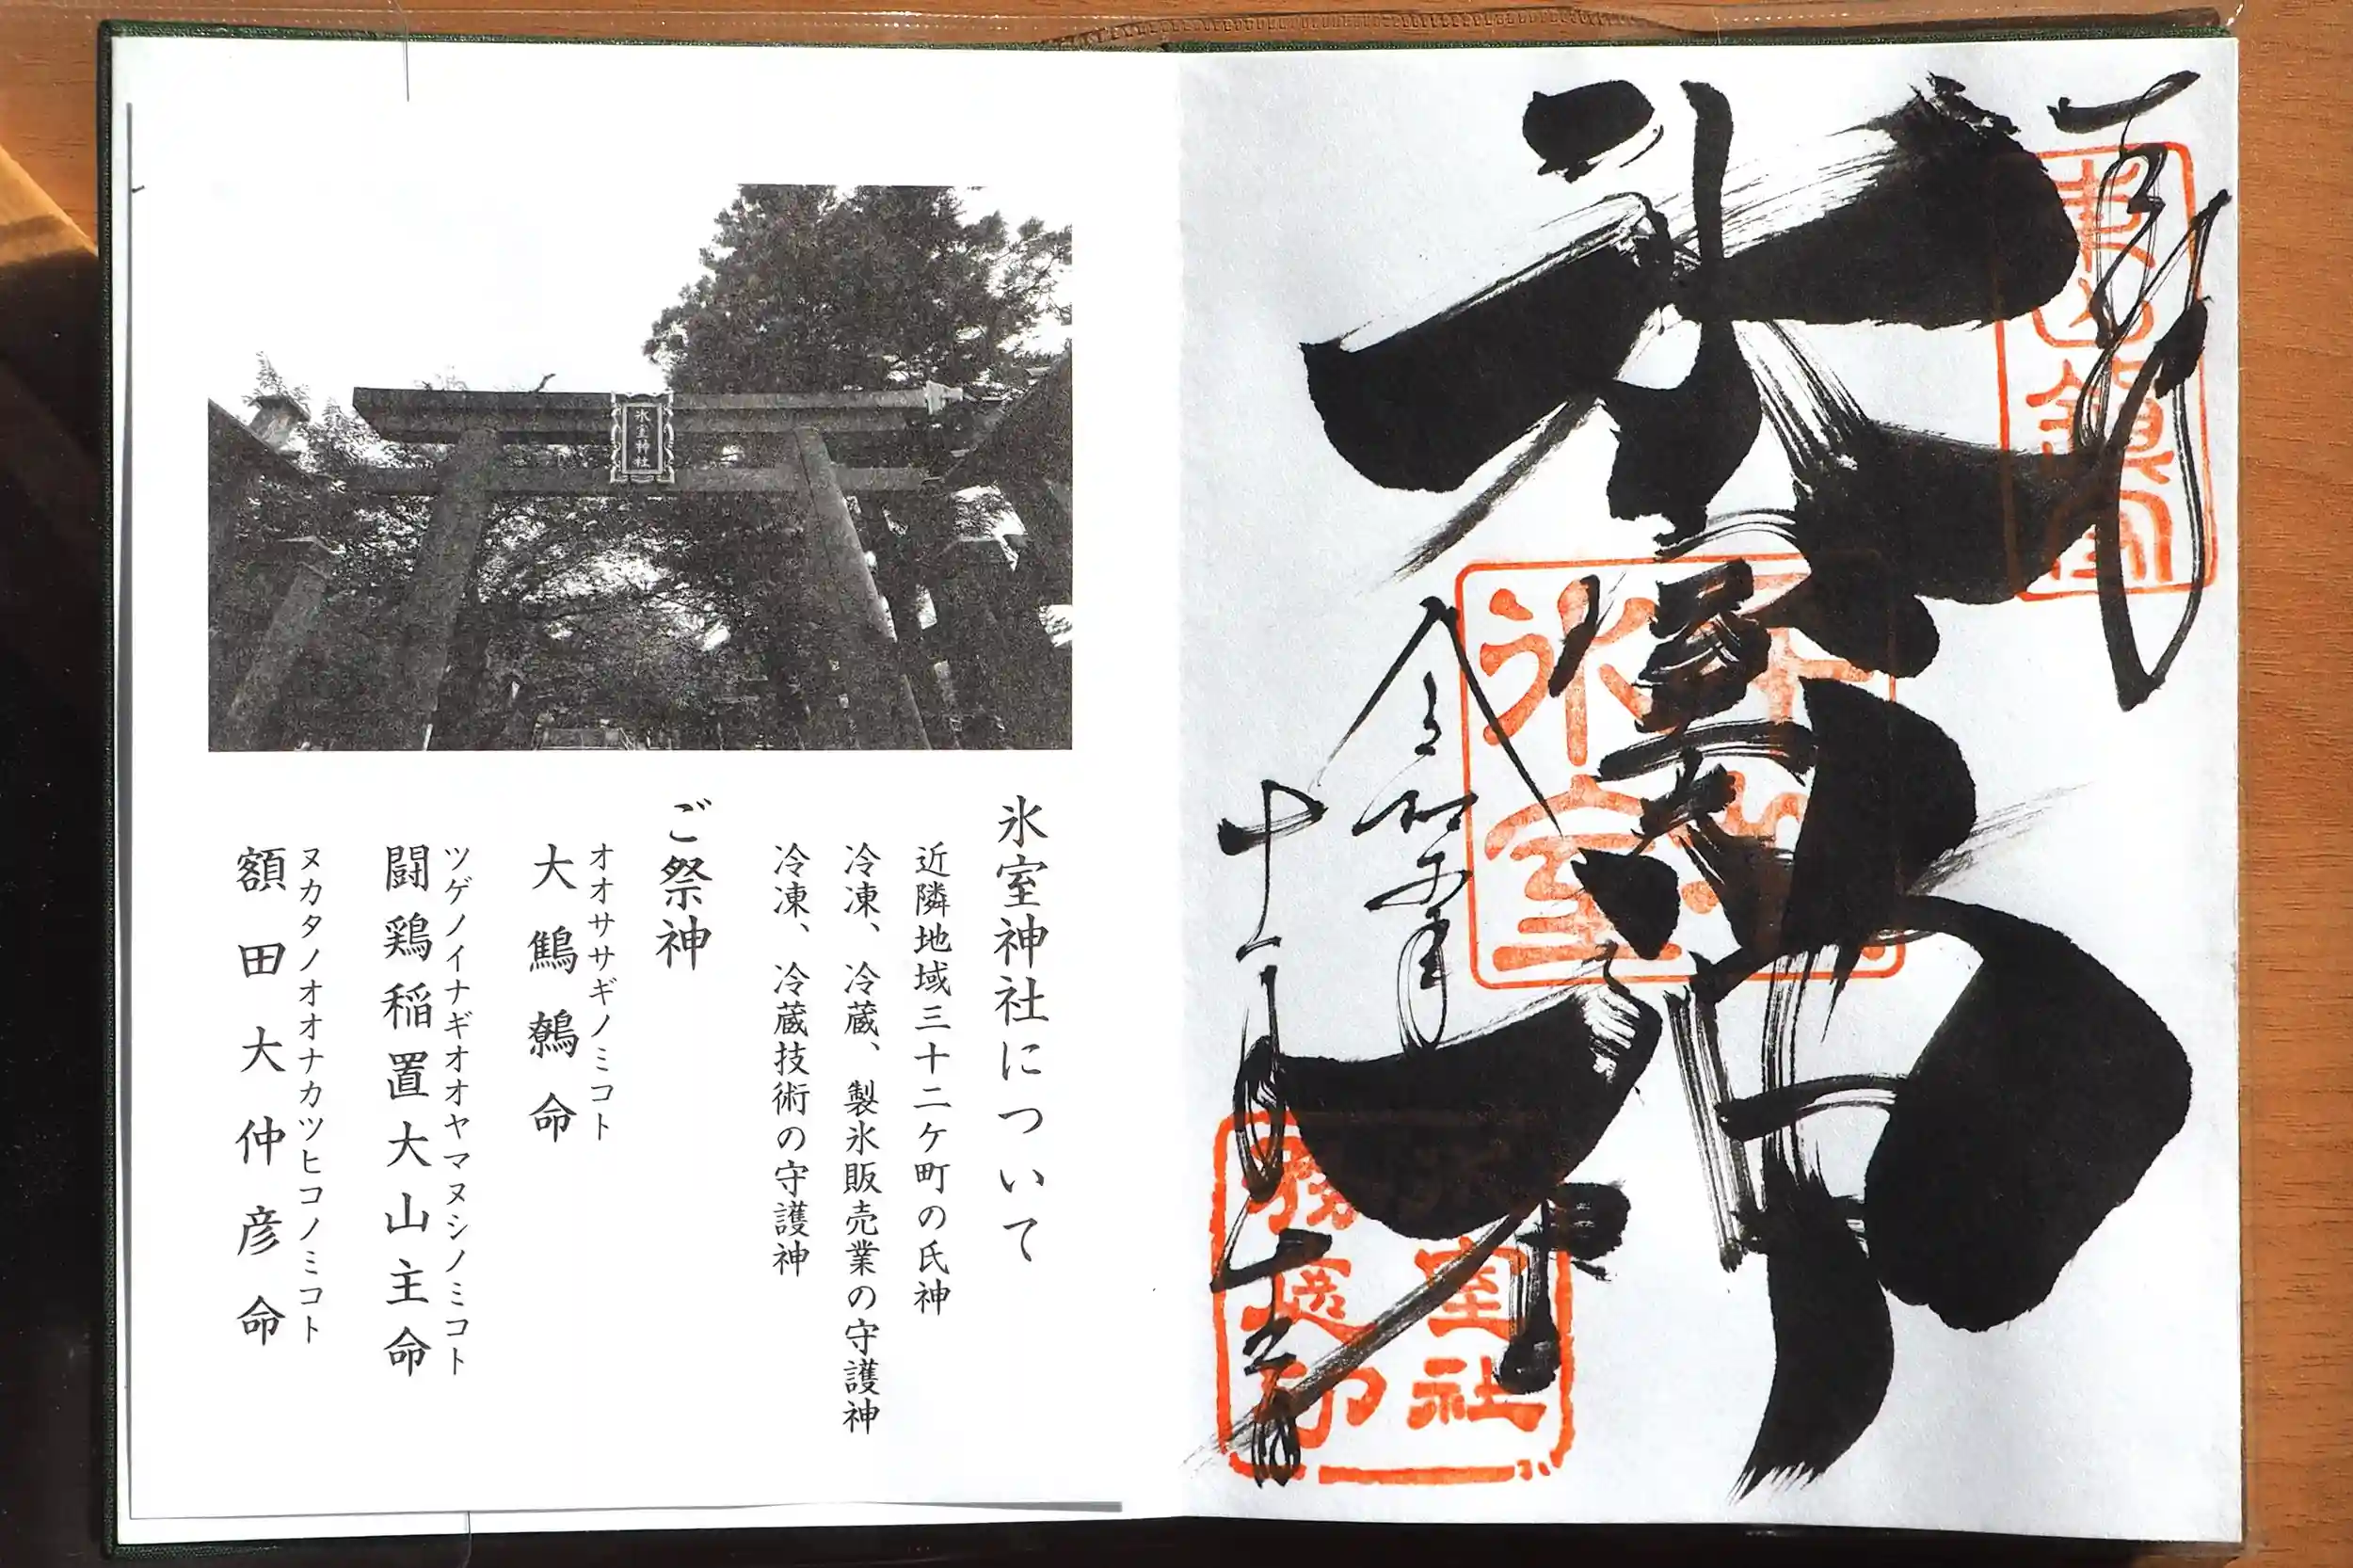 奉拝
氷室神社
令和五年
十一月
十三日
東山鎮宮
氷室神社
氷室社務送印
氷室神社
氷室神社について
近隣地域三十二ケ町の氏神
冷凍、冷蔵、製氷販売業の守護神
冷凍、冷蔵技術の守護神
ご祭神
オオササギノミコト
大鷦鷯命
ツゲノイナギオオヤマヌシノミコト
闘鶏稲置大山主命
ヌカタノオオナカツヒコノミコト
額田大仲彦命